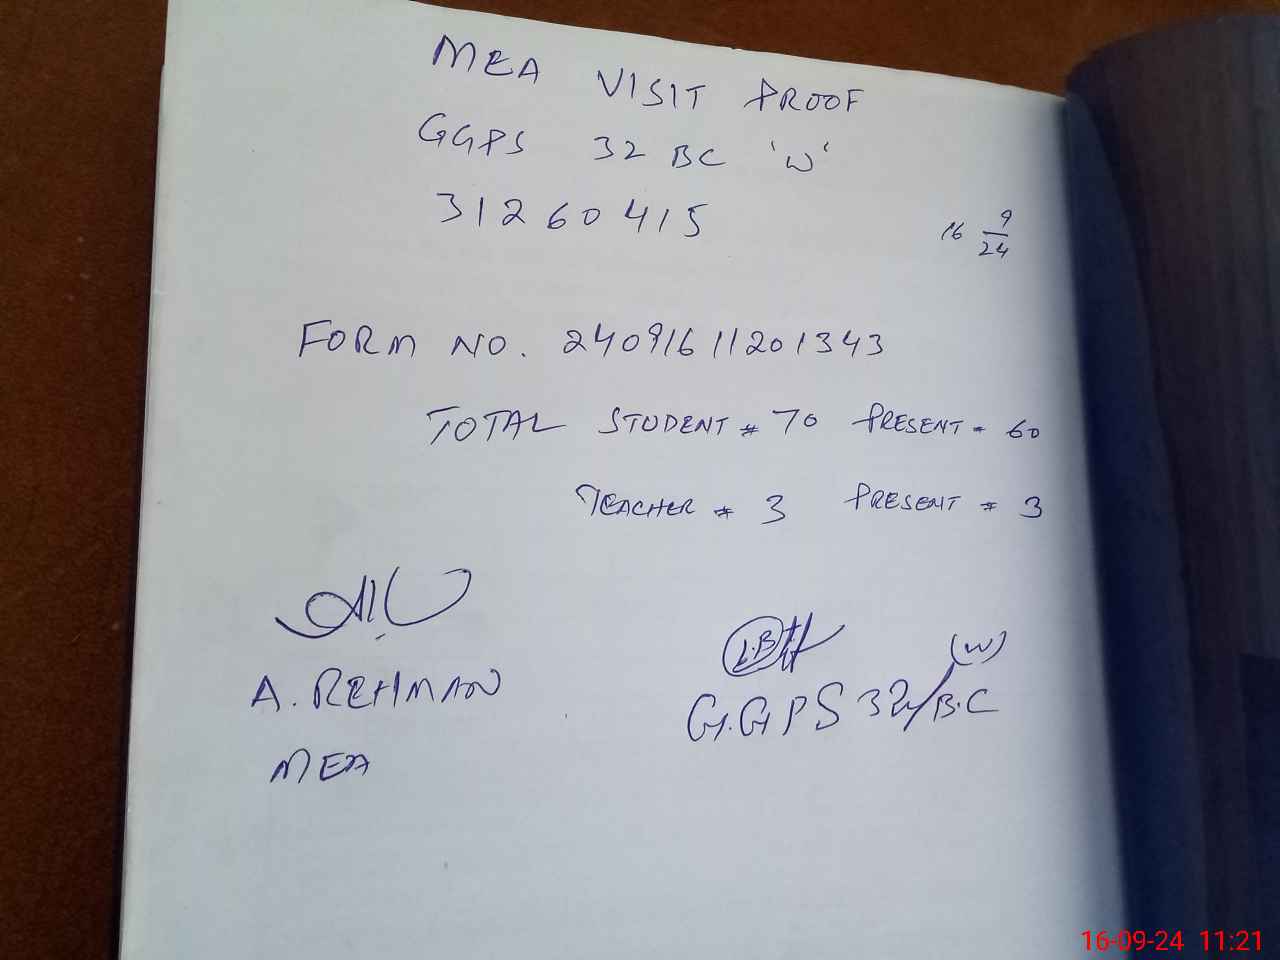 MEA VISIT PROOF
GGPS 32 BC 'W'
31260415
16 9/24
FORM NO. 24091611201343
TOTAL STUDENT = 70 PRESENT = 60
TEACHER = 3 PRESENT = 3
A. REHMAN
MEA
(W)
G.GPS 32/B.C
16-09-24 11:21